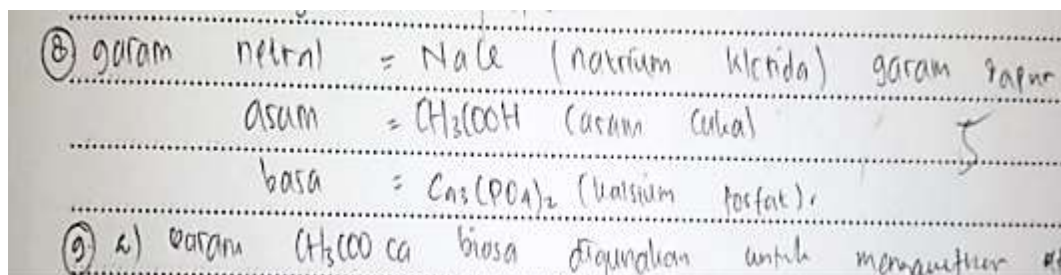 ⑧ garam netral = NaCl (natrium klorida) garam dapur
asam = CH3COOH (asam cuka) 5
basa = Ca3(PO4)2 (kalsium fosfat).
⑨ a) Garam CH3COO ca biasa digunakan untuk